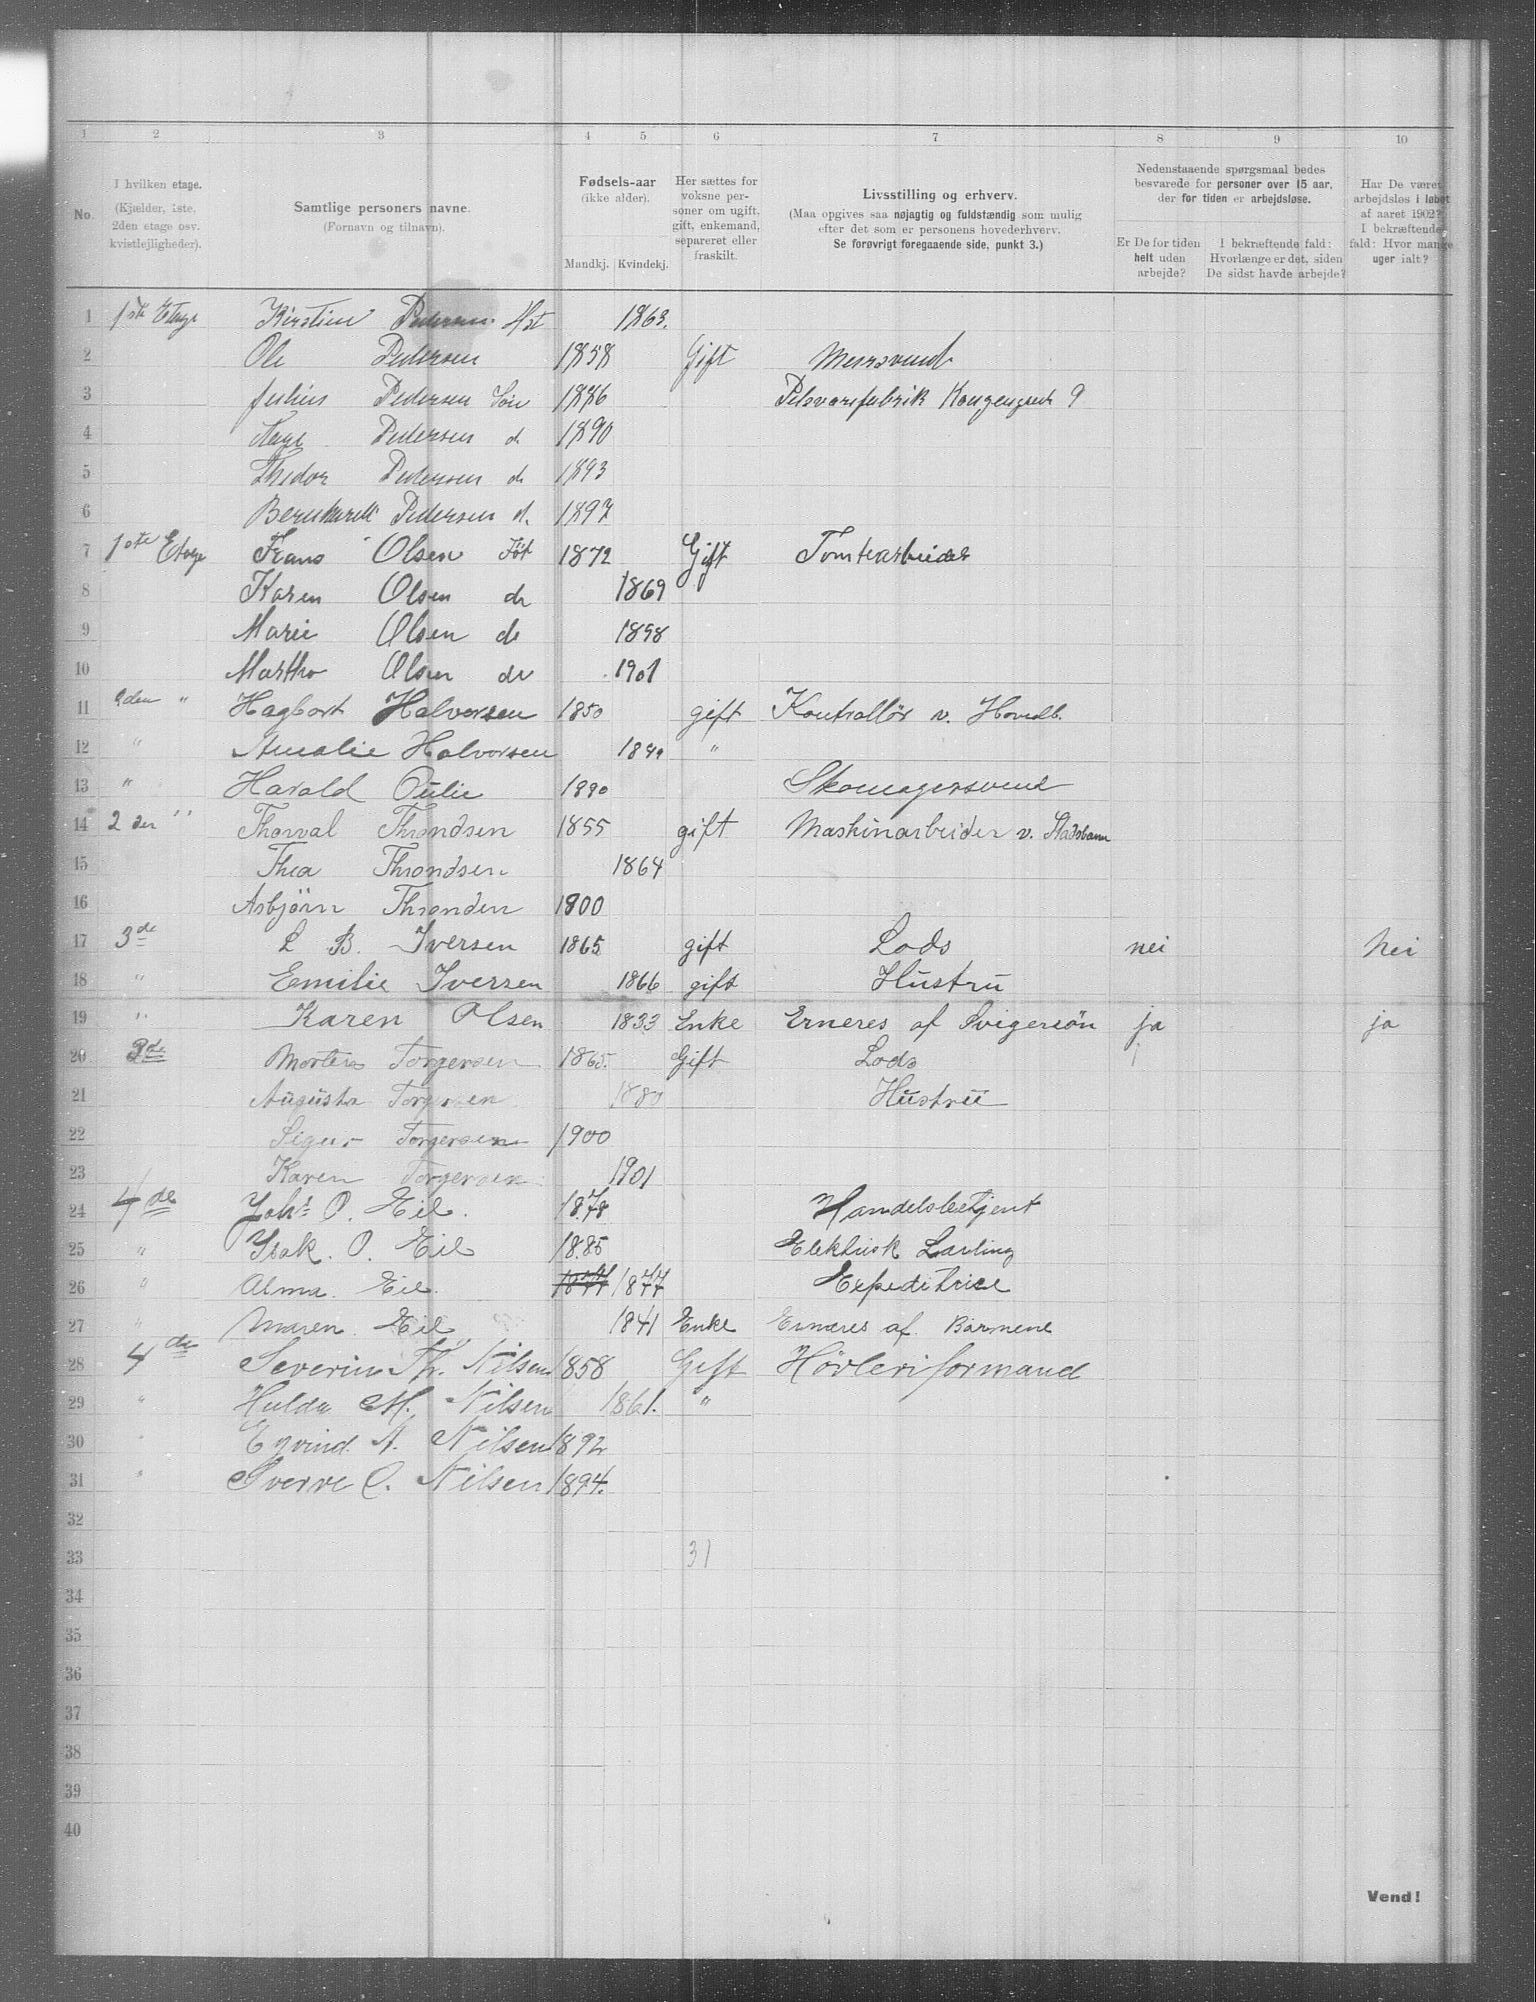 1 2 3 4 5 6 7 8 9 10
No. I hvilken etage. (Kjælder, 1ste. 2den etage osv. kvistlejligheder).
Samtlige personers navne. (Fornavn og tilnavn).
Fødsels-aar (ikke alder). Mandkj. Kvindekj.
Her sættes for voksne personer om ugift, gift, enkemand, separeret eller fraskilt.
Livsstilling og erhverv. (Maa opgives saa nøjagtig og fuldstændig som mulig efter det som er personens hovederhverv. Se forøvrigt foregaaende side, punkt 3.)
Nedenstaaende spørgsmaal bedes besvarede for personer over 15 aar, der for tiden er arbejdsløse.
Er De for tiden helt uden arbejde?
I bekræftende fald: Hvorlænge er det, siden De sidst havde arbejde?
Har De været arbejdsløs i løbet af aaret 1902? I bekræftende fald: Hvor mange uger ialt?
1 1ste Etage Kirstine Pedersen Hst 1863.
2 Ole Pedersen 1858 Gift
3 Julius Pedersen Søn 1886 Pelsvarefabrik 9
4 Aage Pedersen do 1890
5 Thedor Pedersen do 1893
6 Pedersen d. 1897
7 1ste Etage Frans Olsen Føt 1872 Gift Tomtearbeider
8 Karen Olsen do 1869
9 Marie Olsen do 1898
10 Martha Olsen do 1901
11 2den " Hagbart Halvorsen 1850 gift Kontrollør v. Hovedb.
12 " Amalie Halvorsen "
13 " Harald 1890 Skomagersvend
14 2der " Thorval Throndsen 1855 gift Maskinarbeider v. Stadsbann
15 Thea Throndsen 1864
16 Asbjörn Thronden 1900
17 3de L B. Iversen 1865 gift Lods nei Nei
18 " Emilie Iversen 1866 gift Hustru
19 " Karen Olsen 1833 Enke Erneres af Svigersön ja ja
20 3de Morten Torgersen 1865. Gift Lods
21 Augusta Torgersen 1880 Hustru
22 Sigur Torgersen 1900
23 Karen Torgersen 1901
24 4de Johs O. Eil. 1878 Handelsbetjent
25 " Isak. O. Eil 1885 Elektrisk Lærling
26 " Alma. Eil. 1877 1877 Expeditrice
27 " Maren Eil 1841 Enke Ernæres af Barnene
28 4de Severin Th. Nilsen 1858 Gift Hövleriformand
29 " Hulda M. Nilsen 1861. "
30 " Eyvind A. Nilsen 1892
31 " Sverre O. Nilsen 1894.
32
33 31
34
35
36
37
38
39
40
Vend!